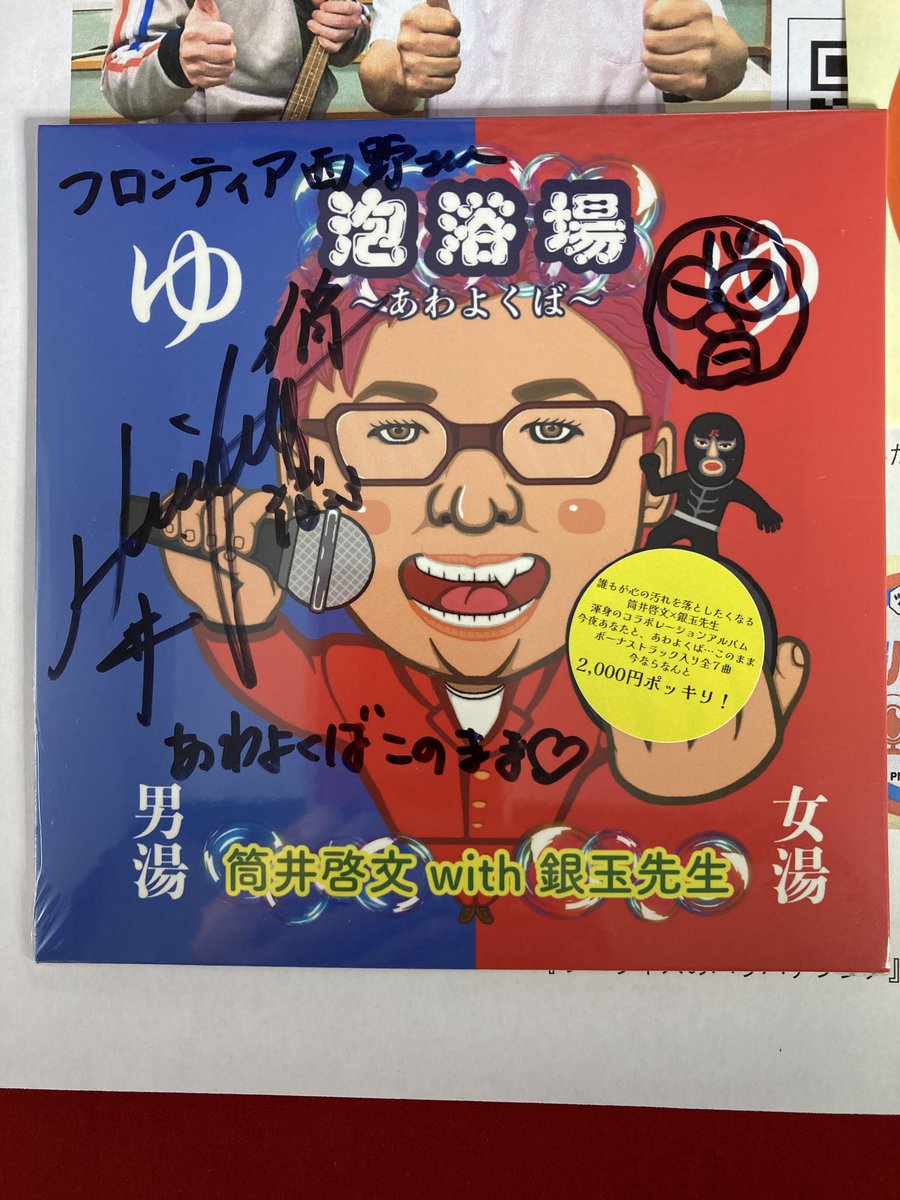 フロンティア西野さん
泡浴場
～あわよくば～
ゆ
ゆ
筒
井
誰もが心の汚れを落としたくなる
筒井啓文×銀玉先生
渾身のコラボレーションアルバム
今夜あなたと、あわよくば…このまま
ボーナストラック入り全7曲
今ならなんと
2,000円ポッキリ！
あわよくばこのまま♡
男湯
女湯
筒井啓文 with 銀玉先生